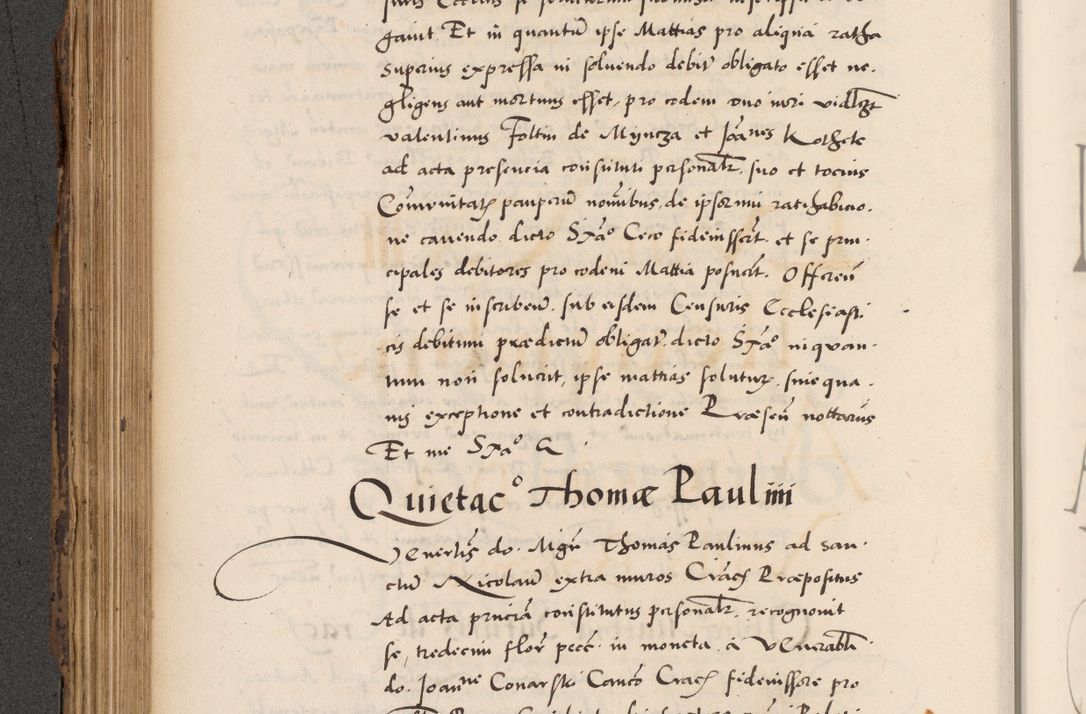 gavit Et in quantũ ipse Mattias pro aliqua ratha
superius expressa in solvendo debit obligato esset ne.
gligens aut mortuus esset, pro eodem uno iuri vidlzt
valentinus Foltin de Myncza et Joães Kothek
ad acta presencia constituti personalr suo et tocius
Comunitatz pauperũ nomibus, de ipsor mũ ratihabicio.
ne cavendo dicto Stão Ceco fideiusserũt. et se prin.
cipales debitores pro eodem Mattia posuerũt. Offereñ
se et se inscribeñ. sub eisdem Censuris Ecclesiasti
cis debitum prædictũ obligat dicto Stão in quan.
tum non soluerit, ipse mattias solutur, sine qua.
vis exceptione et contradictione Præseñ nottarius
Et me Stão C
Quietac° Thomæ Paulini
Venerlis do. Mgr Thomas Paulinus ad san.
ctũ Nicolaũ extra muros Cracz Præpositus
Ad acta pñciã constitutus personalr. recognovit
se, tredecim flor pecc in moneta. a Venerabli
do. Joanne Conarski Canco Cracz fideiussore pro